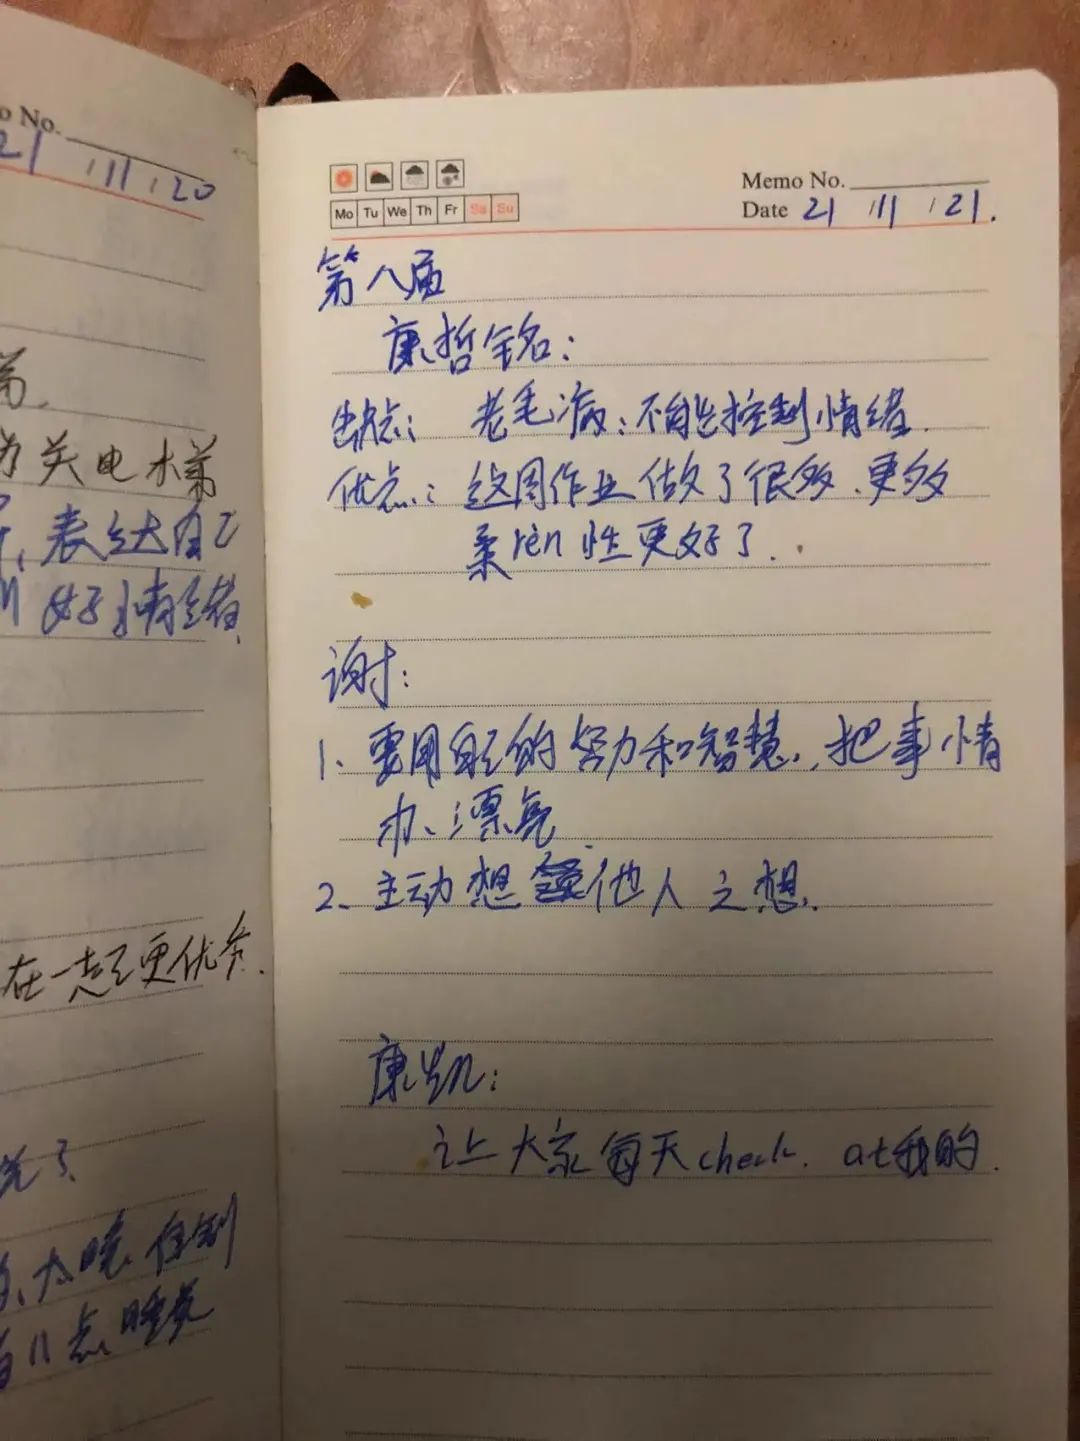 o No.
21 / 11 / 20
为关电梯
表达自己
好情绪
在一起更优秀.
太晚
11点睡觉
Mo Tu We Th Fr Sa Su
Memo No.
Date 21 / 11 / 21.
第八届
康哲铭:
缺点: 老毛病:不能控制情绪.
优点: 这周作业做了很多、更多
柔rèn性更好了.
谢:
1、要用自己的努力和智慧,把事情
办漂亮.
2、主动想 他人之想.
康凯:
让大家每天check. at我的.